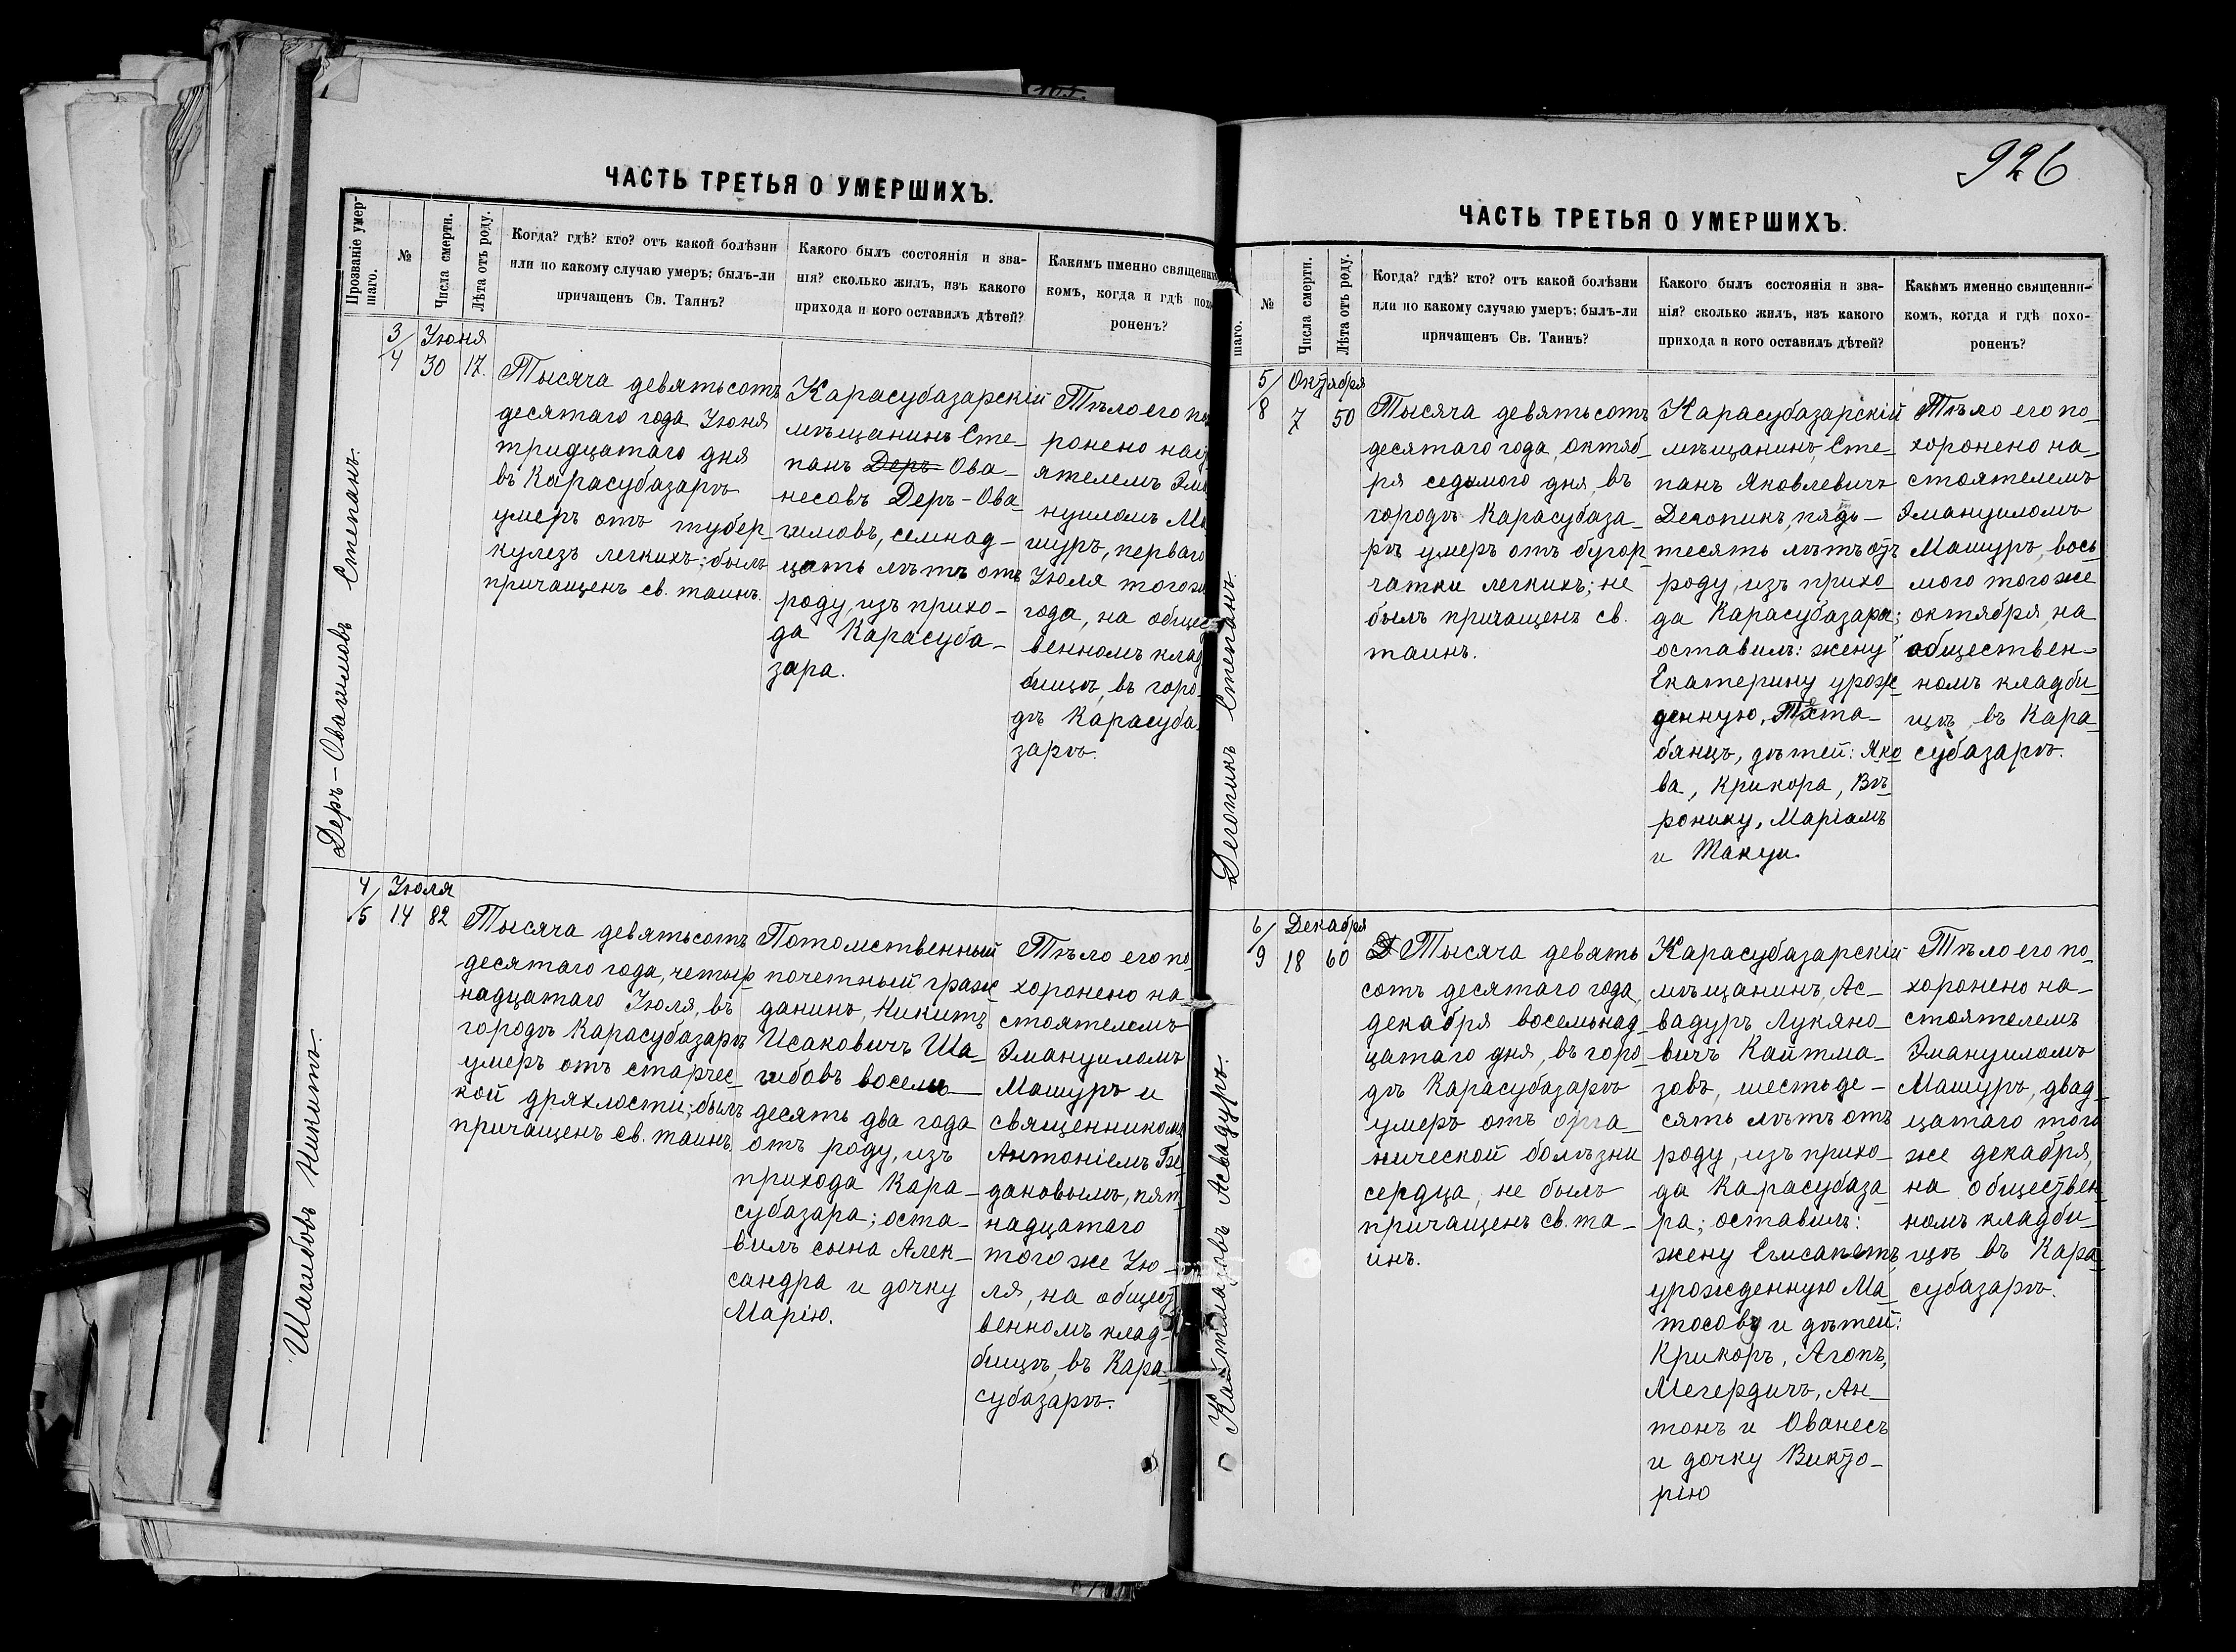 ЧАСТЬ ТРЕТЬЯ О УМЕРШИХЪ.
Прозваніе умер-
шаго.
№
Числа смерти.
Лѣта отъ роду.
Когда? гдѣ? кто? отъ какой болѣзни
или по какому случаю умеръ; былъ-ли
причащенъ Св. Таинъ?
Какого былъ состоянія и зва-
нія? сколько жилъ, изъ какого
прихода и кого оставилъ дѣтей?
Какимъ именно священни
комъ, когда и гдѣ похо
роненъ?
Деръ-Овагимовъ Степанъ.
3/4
Іюня
30
17.
Тысяча девятьсотъ
десятаго года Іюня
тридцатаго дня
въ Карасубазарѣ
умеръ отъ тубер-
кулезъ легкихъ; былъ
причащенъ св. таинъ.
Карасубазарскій
мѣщанинъ Сте-
панъ Деръ Ова-
несовъ Деръ-Ова-
гимовъ, семнад-
цать лѣтъ отъ
роду, изъ прихо-
да Карасуба-
зара.
Тѣло его по
ронено наст
ятелемъ Эма
нуиломъ Ма
шуръ, перваго
Іюля того же
года, на общес
венномъ клад
бищѣ, въ горо-
дѣ Карасуба-
зарѣ.
Шагибовъ Никита.
4/5
Іюля
14
82
Тысяча девятьсотъ
десятаго года, четыр
надцатаго Іюля, въ
городѣ Карасубазарѣ
умеръ отъ старчес-
кой дряхлости; былъ
причащенъ св. таинъ.
Потомственный
почетный граж
данинъ, Никита
Исаковичъ Ша-
гибовъ восемь
десять два года
отъ роду, изъ
прихода Кара-
субазара; оста-
вилъ сына Алек-
сандра и дочку
Марію.
Тѣло его по-
хоронено на-
стоятелемъ
Эмануиломъ
Машуръ и
священникомъ
Антоніемъ Бз
дановымъ, пят-
надцатаго
того же Ію-
ля, на общест
венномъ клад-
бищѣ, въ Кара-
субазарѣ.
926
ЧАСТЬ ТРЕТЬЯ О УМЕРШИХЪ.
шаго.
№
Числа смерти.
Лѣта отъ роду.
Когда? гдѣ? кто? отъ какой болѣзни
или по какому случаю умеръ; былъ-ли
причащенъ Св. Таинъ?
Какого былъ состоянія и зва-
нія? сколько жилъ, изъ какого
прихода и кого оставилъ дѣтей?
Какимъ именно священни-
комъ, когда и гдѣ похо-
роненъ?
Дегопикъ Степанъ.
5/8
Октября
7
50
Тысяча девятьсотъ
десятаго года, октяб-
ря седьмого дня, въ
городѣ Карасубаза-
рѣ умеръ отъ бугор-
чатки легкихъ; не
былъ причащенъ св.
таинъ.
Карасубазарскій
мѣщанинъ, Сте-
панъ Яковлевичъ
Дегопикъ, пядь-
тесять лѣтъ отъ
роду, изъ прихо-
да Карасубазара;
оставилъ: жену
Екатерину урож-
денную,
бянцъ, дѣтей: Яко
ва, Крикора, Вѣ-
ронику, Маріамъ
и Такуи.
Тѣло его по-
хоронено на-
стоятелемъ
Эмануиломъ
Машуръ, вось
мого того же
октября, на
обществен-
номъ кладби-
щѣ, въ Кара-
субазарѣ.
Кайтмазовъ Асвадуръ.
6/9
Декабря
18
60
Тысяча девять
сотъ десятаго года,
декабря восемьнад-
цатаго дня, въ горо-
дѣ Карасубазарѣ
умеръ отъ орга-
нической болѣзни
сердца, не былъ
причащенъ св. та-
инъ.
Карасубазарскій
мѣщанинъ, Ас-
вадуръ Лукяно-
вичъ Кайтма-
зовъ, шестьде-
сять лѣтъ отъ
роду, изъ прихо-
да Карасубаза
ра; оставилъ:
жену Егисапетъ,
урожденную Ма-
тосову и дѣтей:
Крикоръ, Агопъ,
Мегердичъ, Ан-
тонъ и Ованесъ
и дочку Викто-
рію
Тѣло его по-
хоронено на-
стоятелемъ
Эмануиломъ
Машуръ, двад-
цатаго того
же декабря,
на обществен-
номъ кладби-
щѣ въ Кара-
субазарѣ.